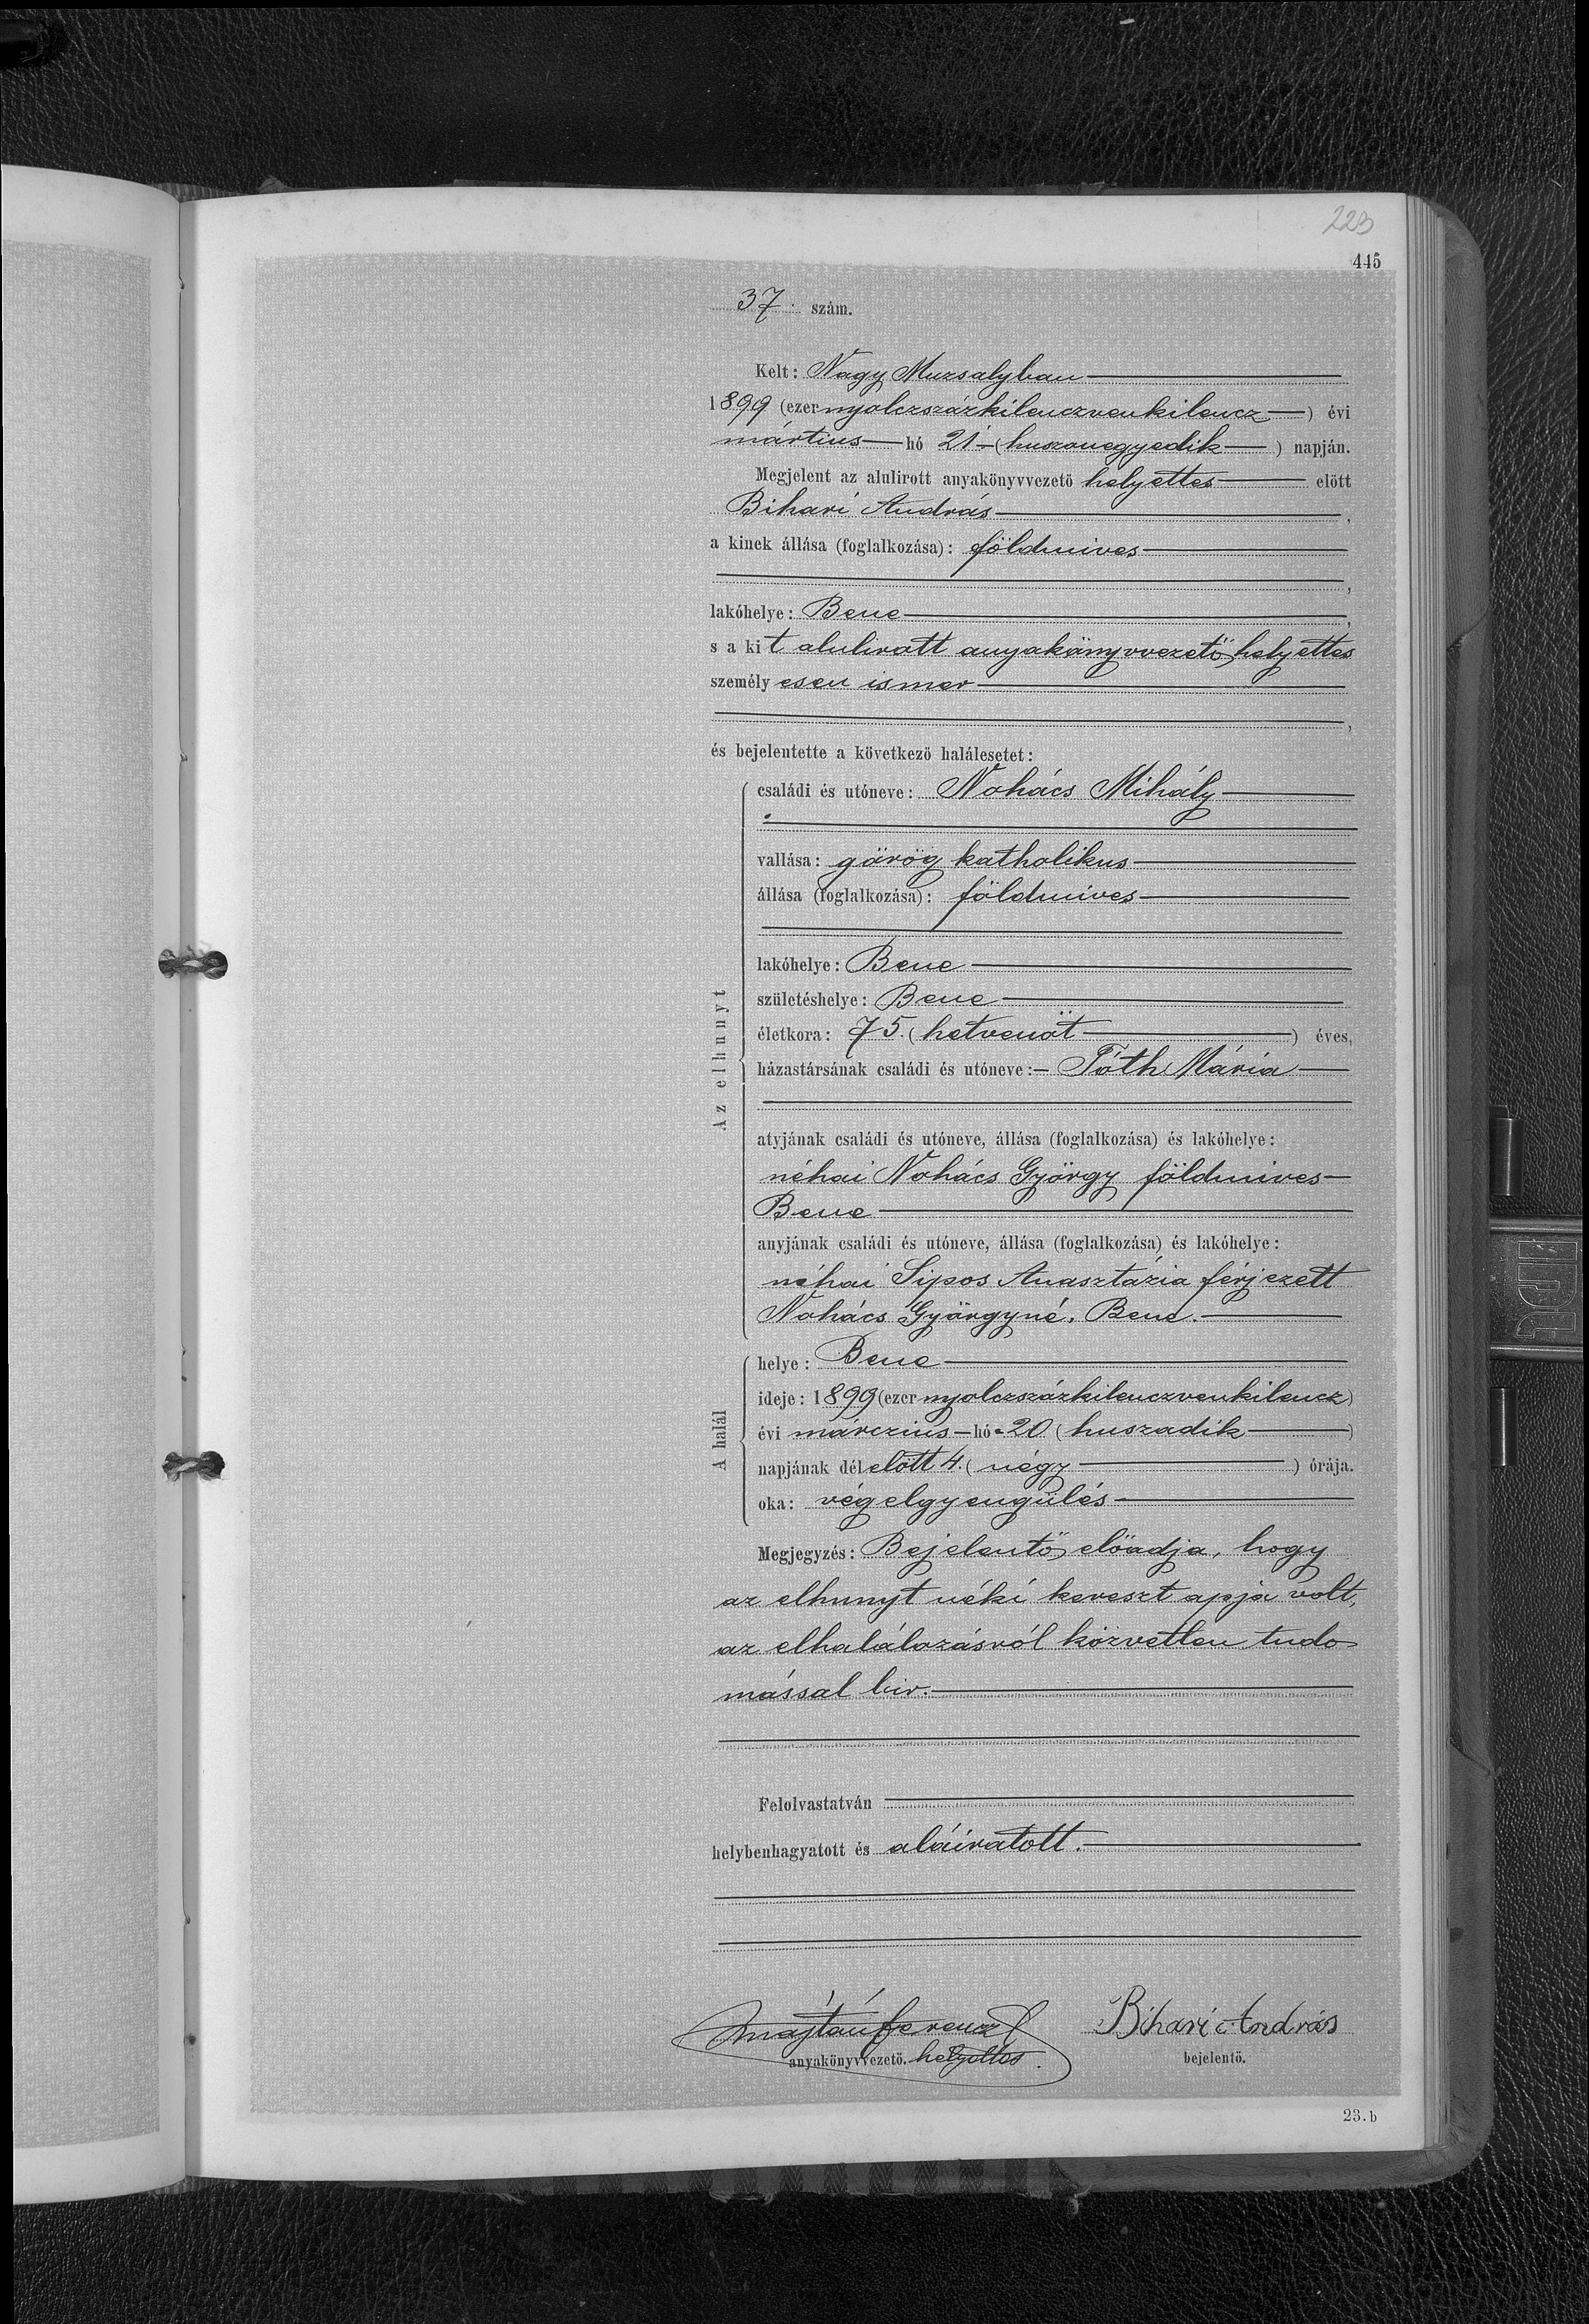 223
445
37. szám.
Kelt: Nagy Muzsalyban
1899 (ezer nyolczszázkilenczvenkilencz) évi
mártius hó 21 (huszonegyedik) napján.
Megjelent az alulirott anyakönyvvezető helyettes előtt
Bihari András,
a kinek állása (foglalkozása): földmives
,
lakóhelye: Bene,
s a kit alulirott anyakönyvvezető helyettes
személyesen ismer
,
és bejelentette a következő halálesetet:
Az elhunyt
családi és utóneve: Nohács Mihály
vallása: görög katholikus
állása (foglalkozása): földmives
lakóhelye: Bene
születéshelye: Bene
életkora: 75. (hetvenöt) éves,
házastársának családi és utóneve: Tóth Mária
atyjának családi és utóneve, állása (foglalkozása) és lakóhelye:
néhai Nohács György földmives
Bene
anyjának családi és utóneve, állása (foglalkozása) és lakóhelye:
néhai Sipos Anasztázia férjezett
Nohács Györgyné. Bene.
A halál
helye: Bene
ideje: 1899 (ezer nyolczszázkilenczvenkilencz)
évi márczius hó 20 (huszadik)
napjának délelőtt 4. (négy) órája.
oka: végelgyengülés
Megjegyzés: Bejelentő előadja, hogy
az elhunyt néki kereszt apja volt,
az elhalálozásról közvetlen tudo
mással bir.
Felolvastatván
helybenhagyatott és aláiratott.
Majtán Ferencz Bihari András
anyakönyvvezető. helyettes. bejelentő.
23.b